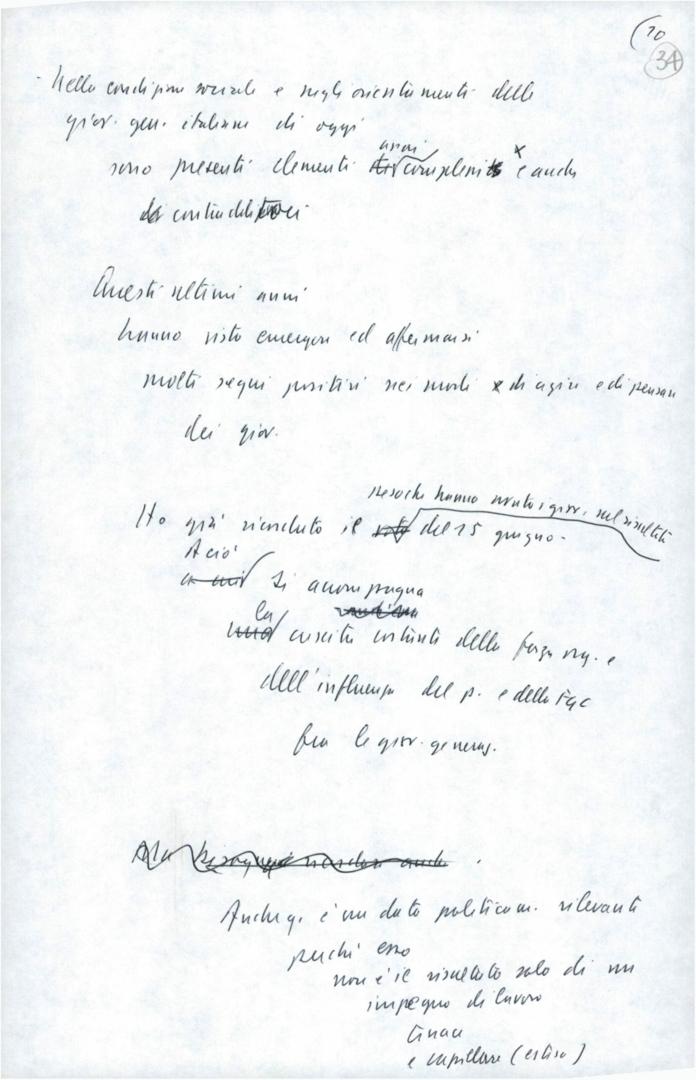 (10
34
Nella condizione sociale e negli orientamenti delle
giov. gen. italiane di oggi
sono presenti elementi assai complessi e anche
contraddittori
Questi ultimi anni
hanno visto emergere ed affermarsi
molti segni positivi nei modi di agire e di pensare
dei giov.
peso che hanno avuto i giov. sul risultato
Ho già ricordato il del 15 giugno.
A ciò
si accompagna
la
crescita costante della forza org. e
dell'influenza del p. e della FGC
fra le giov. generaz.
Ma bisogna ricordare anche.
Anche q. è un dato politicam. rilevante
perché esso
non è il risultato solo di un
impegno di lavoro
tenace
e capillare (esteso)